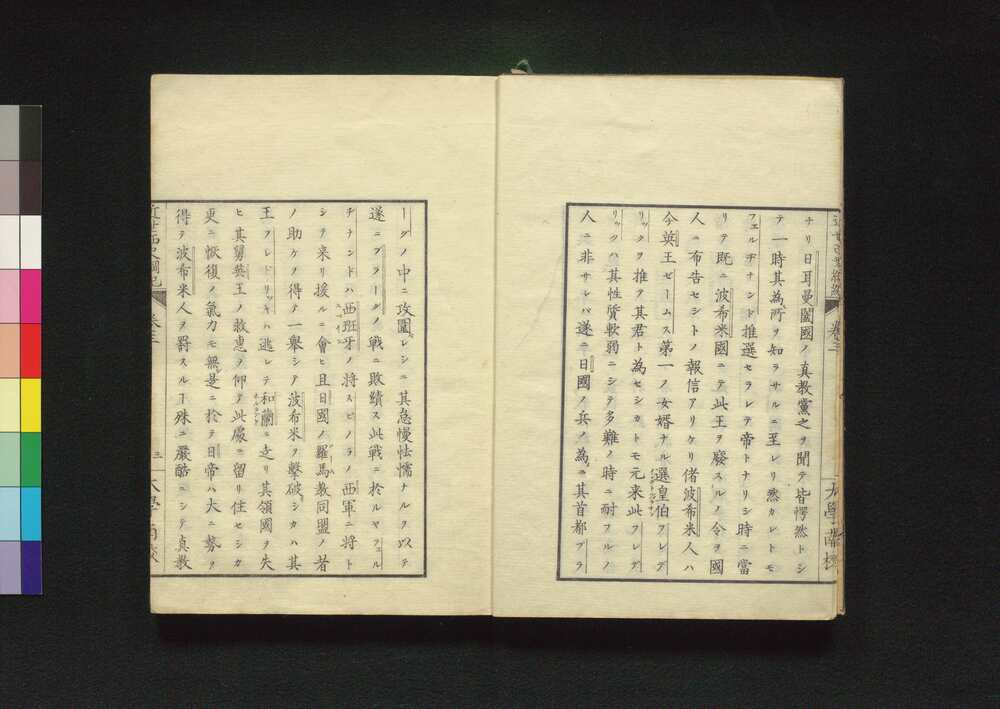 ナリ日耳曼闔國ノ真教黨之ヲ聞テ皆愕然トシ
テ一時其為所ヲ知ラサルニ至レリ然カレトモ
フェルヂナンド推選セラレテ帝トナリシ時ニ當
リテ既ニ波希米國ニテ此王ヲ廢スルノ令ヲ國
人ニ布告セシトノ報信アリケリ偖波希米人ハ
今英王ゼームス第一ノ女婿ナル選皇伯フレデ
リックヲ推テ其君ト為セシカトモ元来此フレデ
リックハ其性質軟弱ニシテ多難ノ時ニ耐フルノ
人ニ非サレバ遂ニ日國ノ兵ノ為ニ其首都プラ
ーグノ中ニ攻圍レシニ其怠慢怯懦ナルヲ以テ
遂ニプラーグノ戰ニ敗績ス此戰ニ於ルヤフェル
ヂナンドハ西班牙ノ將スピノラノ西軍ニ將ト
シテ来リ援ルニ會ヒ且日國ノ羅馬教同盟ノ者
ノ助ケヲ得テ一舉シテ波布米ヲ擊破シカハ其
王フレドリッキハ逃レテ和蘭ニ走リ其領國ヲ失
ヒ其舅英王ノ救恵ヲ仰テ此處ニ留リ住セシカ
更ニ恢復ノ氣力モ無是ニ於テ日帝ハ大ニ勢ヲ
得テ波布米人ヲ罸スル丁殊ニ嚴酷ニシテ真教
卷三
三